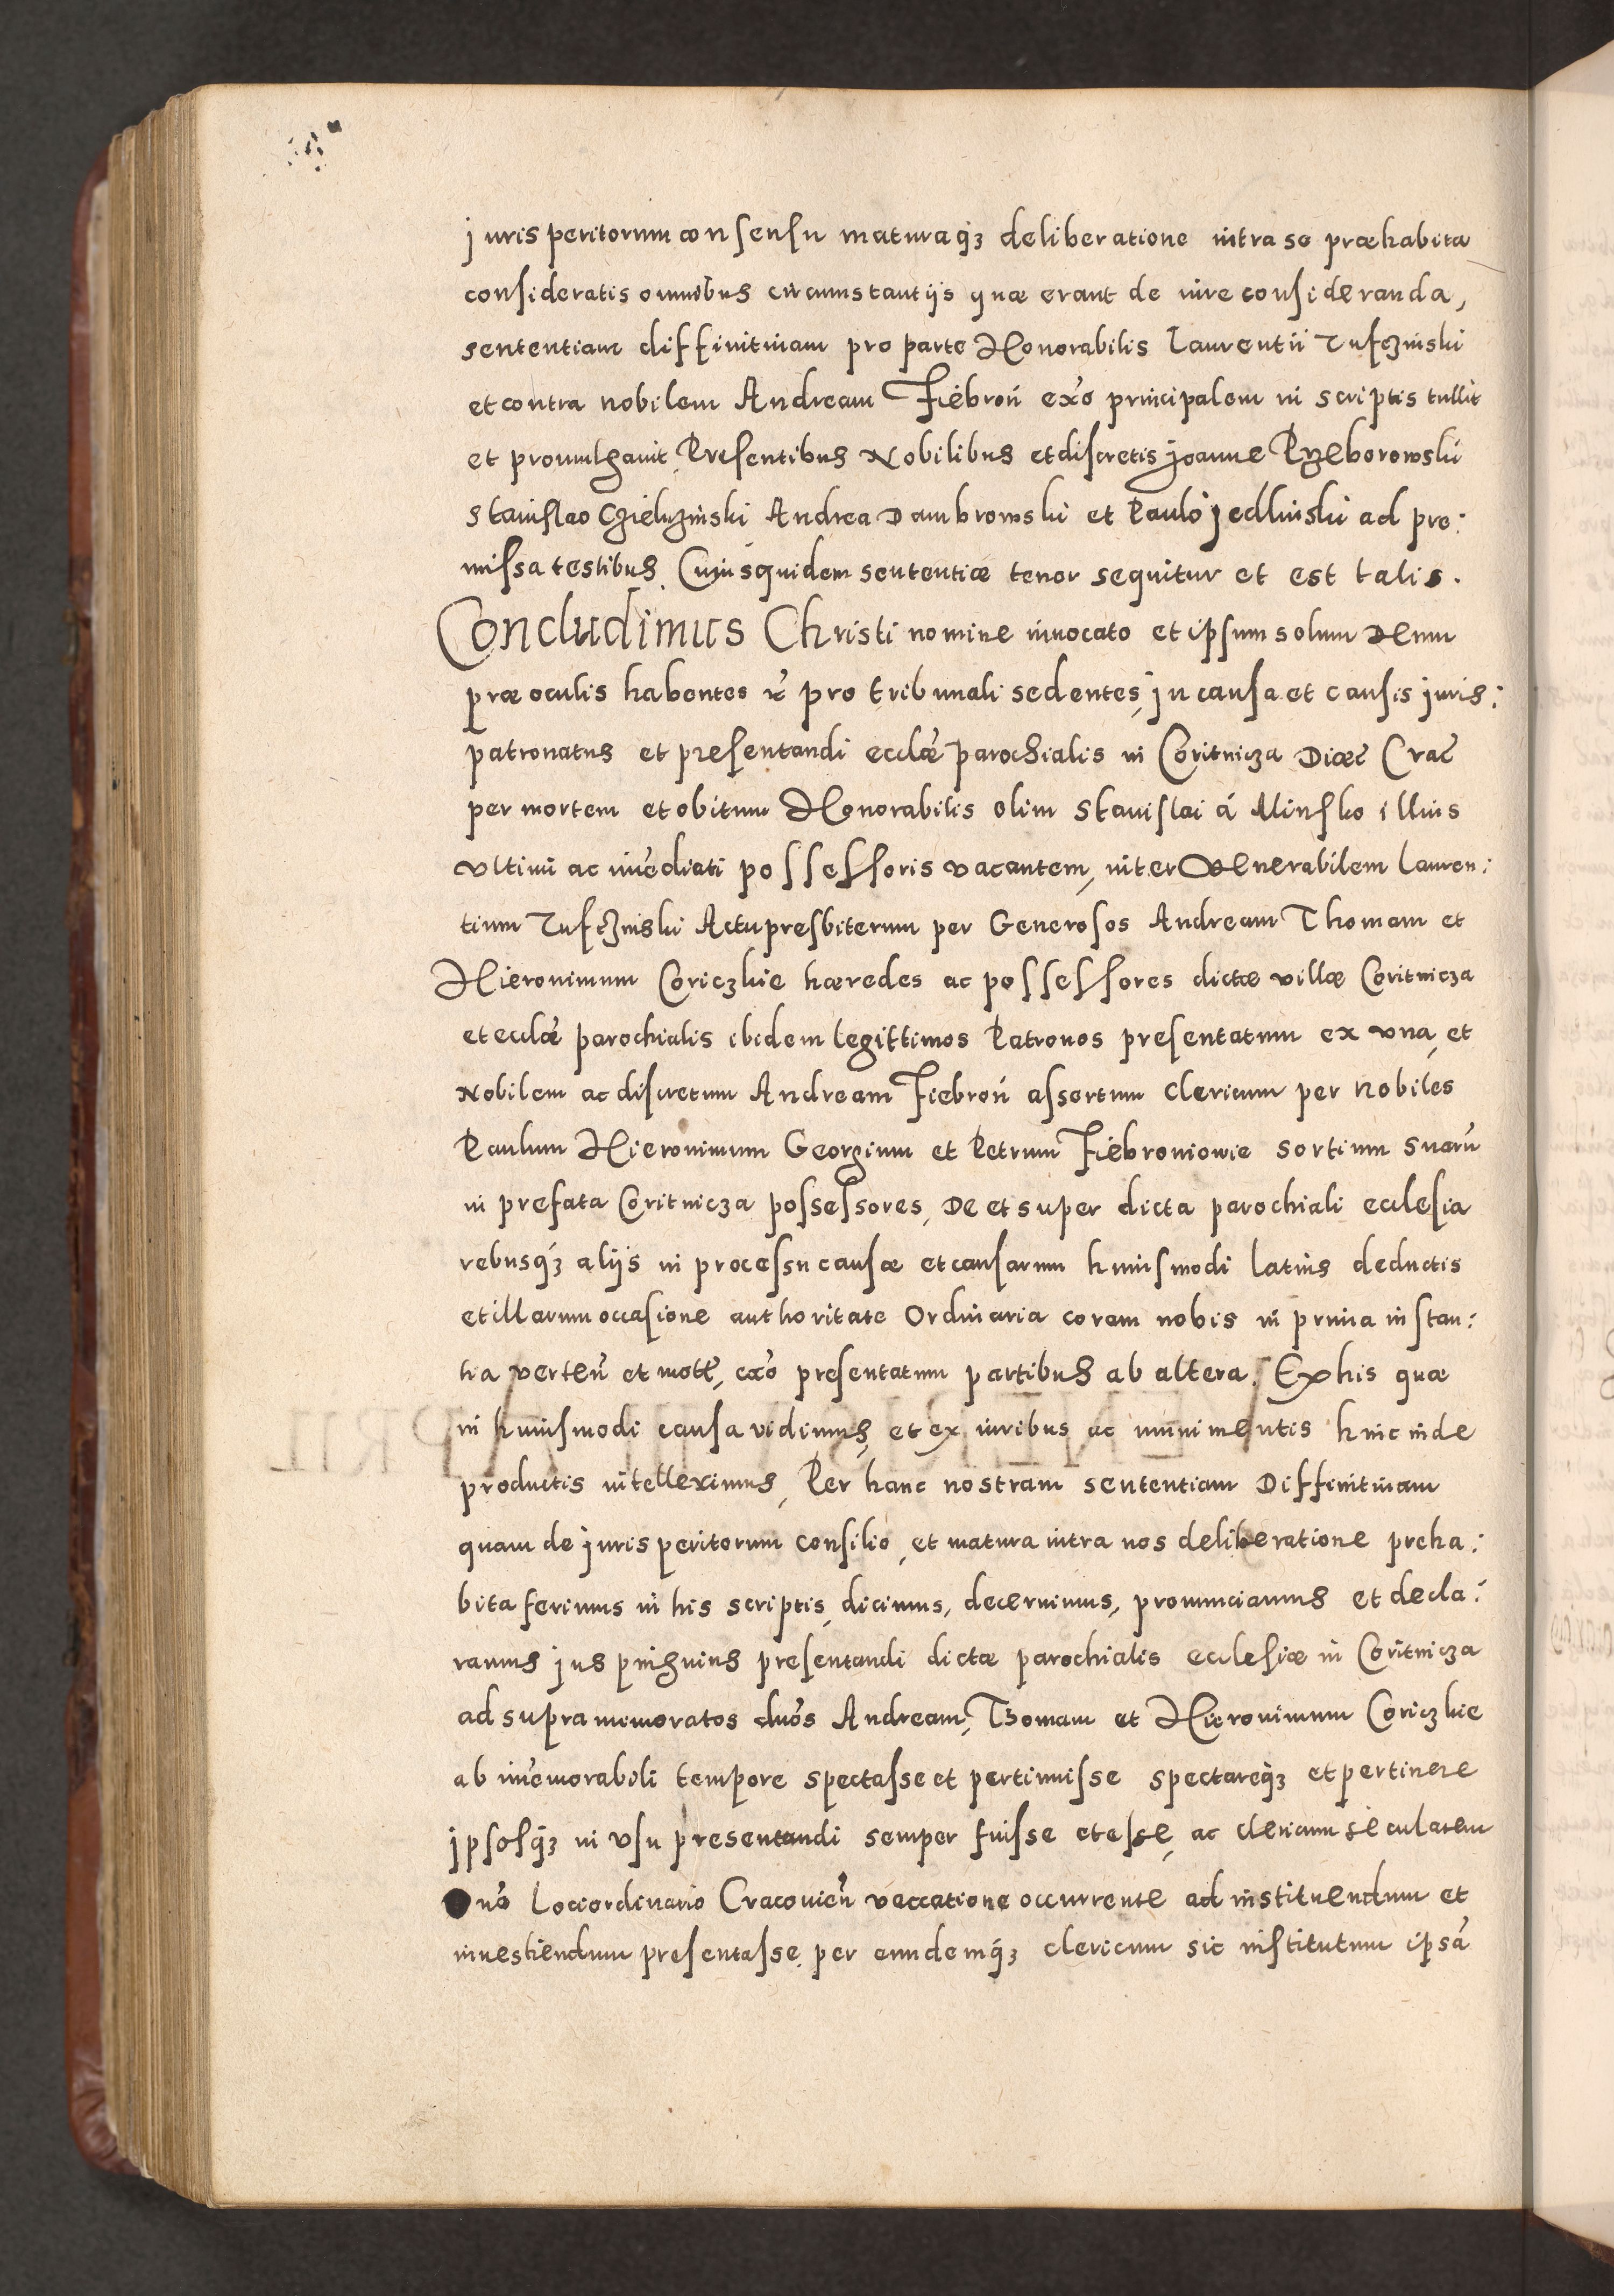 jurisperitorum consensu maturaqȝ deliberatione intra se præhabita
consideratis omnibus circumstantijs quæ erant de iure consideranda,
sententiam diffinitiuam pro parte Honorabilis Laurentii Tufczinski
et contra nobilem Andream Fiebroń exõ principalem in scriptis tullit
et promulgauit, Presentibus Nobilibus et discretis Joanne Przeborowski
Stanislao Andrea Dambrowski et Paulo Jedlinski ad pre:
missa testibus, Cuiusquidem sententiæ tenor sequitur et est talis.
Concludimus Christi nomine inuocato et ipsum solum Deum
præ oculis habentes et pro tribunali sedentes, in causa et causis iuris:
patronatus et presentandi ecclæ̃ parochialis in Coritnicza Dioec̃ Crac̃
per mortem et obitum Honorabilis olim Stanislai á Minsko illius
vltimi ac im̃ediati possessoris vacantem, inter Venerabilem Lauren:
tium Tufczinski Actu presbiterum per Generosos Andream Thomam et
Hieronimum Coriczkie hæredes ac possessores dictæ villæ Coritnicza
et ecclæ̃ parochialis ibidem legittimos Patronos presentatum ex vna, et
Nobilem ac discretum Andream Fiebroń assertum clericum per nobiles
Paulum Hieronimum Georgium et Petrum Fiebroniowie sortium suarũ
in prefata Coritnicza possessores, De et super dicta parochiali ecclesia
rebusqȝ alijs in processu causæ et causarum huiusmodi latius deductis
et illarum occasione authoritate Ordinaria coram nobis in prima instan:
tia verteñ et mot̃, exõ presentatum partibus ab altera. Ex his quæ
in huiusmodi causa vidimus, et ex iuribus ac munimentis hinc inde
productis intelleximus, Per hanc nostram sententiam Diffinitiuam
quam de jurisperitorum consilio, et matura intra nos deliberatione preha:
bita ferimus in his scriptis, dicimus, decernimus, pronunciamus et decla:
ramus jus pinguius presentandi dictæ parochialis ecclesiæ in Coritnicza
ad supra memoratos dnõs Andream, Thomam et Hieronimum Coriczkie
ab im̃emorabili tempore spectasse et pertinuisse spectareqȝ et pertinere
ipsosqȝ in vsu presentandi semper fuisse et esse, ac clericum secularem
Dnõ Lociordinario Cracouieñ vaccatione occurrente ad instituendum et
inuestiendum presentasse, per eundemqȝ clericum sic institutum ipsã